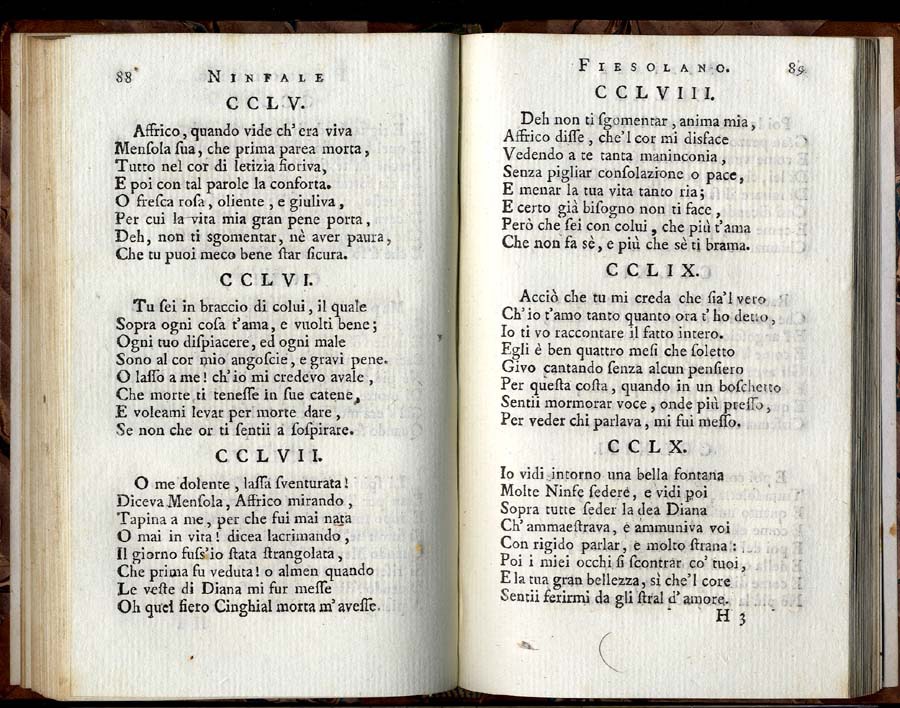 88 NINFALE
CCLV.
Affrico, quando vide ch' era viva
Menſola ſua, che prima parea morta,
Tutto nel cor di letizia fioriva,
E poi con tal parole la conforta.
O freſca roſa, oliente, e giuliva,
Per cui la vita mia gran pene porta,
Deh, non ti sgomentar, nè aver paura,
Che tu puoi meco bene ſtar ſicura.
CCLVI.
Tu ſei in braccio di colui, il quale
Sopra ogni coſa t'ama, e vuolti bene;
Ogni tuo diſpiacere, ed ogni male
Sono al cor mio angoſcie, e gravi pene.
O laſſo a me! ch'io mi credevo avale,
Che morte ti teneſſe in ſue catene,
E voleami levar per morte dare,
Se non che or ti ſentii a ſoſpirare.
CCLVII.
O me dolente, laſſa ſventurata!
Diceva Menſola, Affrico mirando,
Tapina a me, per che fui mai nata
O mai in vita! dicea lacrimando,
Il giorno fuſs'io ſtata ſtrangolata,
Che prima fu veduta! o almen quando
Le veſte di Diana mi fur meſſe
Oh quel fiero Cinghial morta m'aveſſe.
FIESOLANO. 89
CCLVIII.
Deh non ti ſgomentar, anima mia,
Affrico diſſe, che'l cor mi disface
Vedendo a te tanta maninconia,
Senza pigliar conſolazione o pace,
E menar la tua vita tanto ria;
E certo già biſogno non ti face,
Però che ſei con colui, che più t'ama
Che non fa sè, e più che sè ti brama.
CCLIX.
Acciò che tu mi creda che ſia'l vero
Ch'io t'amo tanto quanto ora t'ho detto,
Io ti vo raccontare il fatto intero.
Egli è ben quattro meſi che ſoletto
Givo cantando ſenza alcun penſiero
Per queſta coſta, quando in un boſchetto
Sentii mormorar voce, onde più preſſo,
Per veder chi parlava, mi fui meſſo.
CCLX.
Io vidi intorno una bella fontana
Molte Ninfe ſedere, e vidi poi
Sopra tutte ſeder la dea Diana
Ch'ammaeſtrava, e ammuniva voi
Con rigido parlar, e molto ſtrana:
Poi i miei occhi ſi ſcontrar co'tuoi,
E la tua gran bellezza, sì che'l core
Sentii ferirmi da gli ſtral d'amore.
H 3